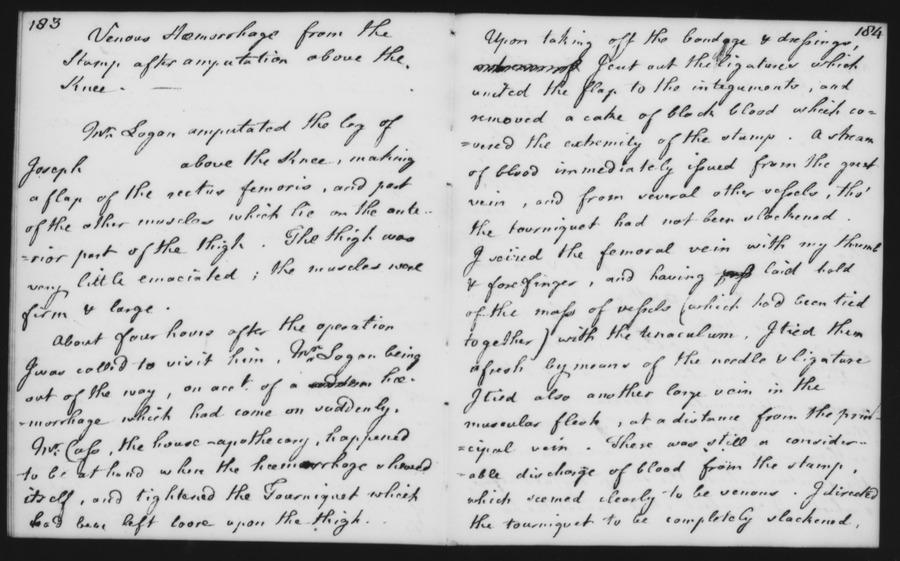 183
Venous Hæmorrhage from the
Stump after amputation above the
Knee. —
Mr. Logan amputated the leg of
Joseph above the Knee, making
a flap of the rectus femoris, and part
of the other muscles which lie on the ante-
=rior part of the thigh. The thigh was
very little emaciated; the muscles were
firm & large.
About four hours after the operation
I was called to visit him, Mr. Logan being
out of the way, on acct. of a hæ-
=morrhage which had come on suddenly.
Mr. Cass, the house-apothecary, happened
to be at hand when the hæmorrhage shewed
itself, and tightened the Tourniquet which
had been left loose upon the thigh.
184
Upon taking off the bandage & dressings,
I cut out the ligatures which
united the flap to the integuments, and
removed a cake of black blood which co=
=vered the extremity of the stump. A stream
of blood immediately issued from the great
vein, and from several other vessels, tho'
the tourniquet had not been slackened.
I seized the femoral vein with my thumb
& forefinger, and having laid hold
of the mass of vessels (which had been tied
together) with the tenaculum, I tied them
afresh by means of the needle & ligature
I tied also another large vein in the
muscular flesh, at a distance from the prin-
=cipal vein. There was still a consider-
=able discharge of blood from the stamp,
which seemed clearly to be venous. I directed
the tourniquet to be completely slackened,